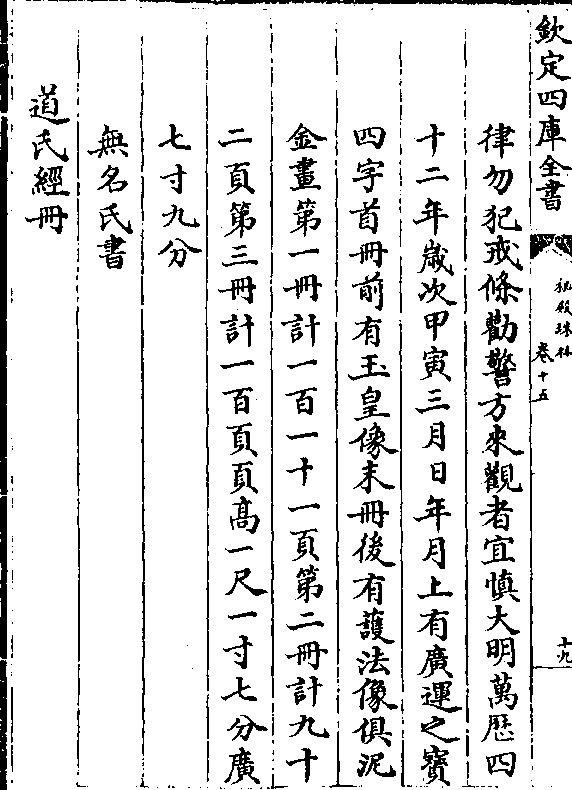 欽定四庫全書
秘殿珠林
卷十五
十九
律勿犯戒條勸警方來觀者宜慎大明萬歴四
十二年嵗次甲寅三月日年月上有廣運之寳
四字首冊前有玉皇像末冊後有護法像俱泥
金畫第一冊計一百一十一頁第二冊計九十
二頁第三冊計一百頁頁髙一尺一寸七分廣
七寸九分
無名氏書
道氏經冊